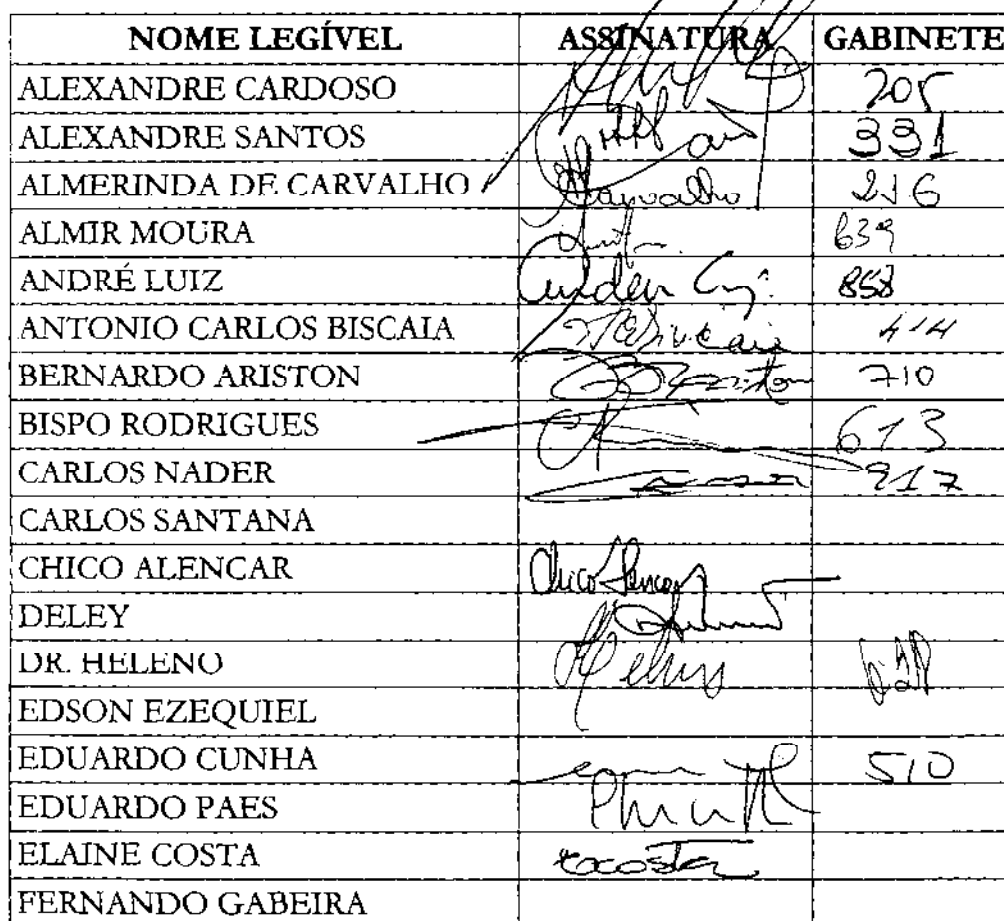 NOME LEGÍVEL ASSINATURA GABINETE
ALEXANDRE CARDOSO 205
ALEXANDRE SANTOS 331
ALMERINDA DE CARVALHO Carvalho 216
ALMIR MOURA 639
ANDRÉ LUIZ 858
ANTONIO CARLOS BISCAIA 414
BERNARDO ARISTON 710
BISPO RODRIGUES 613
CARLOS NADER 917
CARLOS SANTANA
CHICO ALENCAR Chico Alencar
DELEY
DR. HELENO
EDSON EZEQUIEL
EDUARDO CUNHA 510
EDUARDO PAES
ELAINE COSTA ecosta
FERNANDO GABEIRA